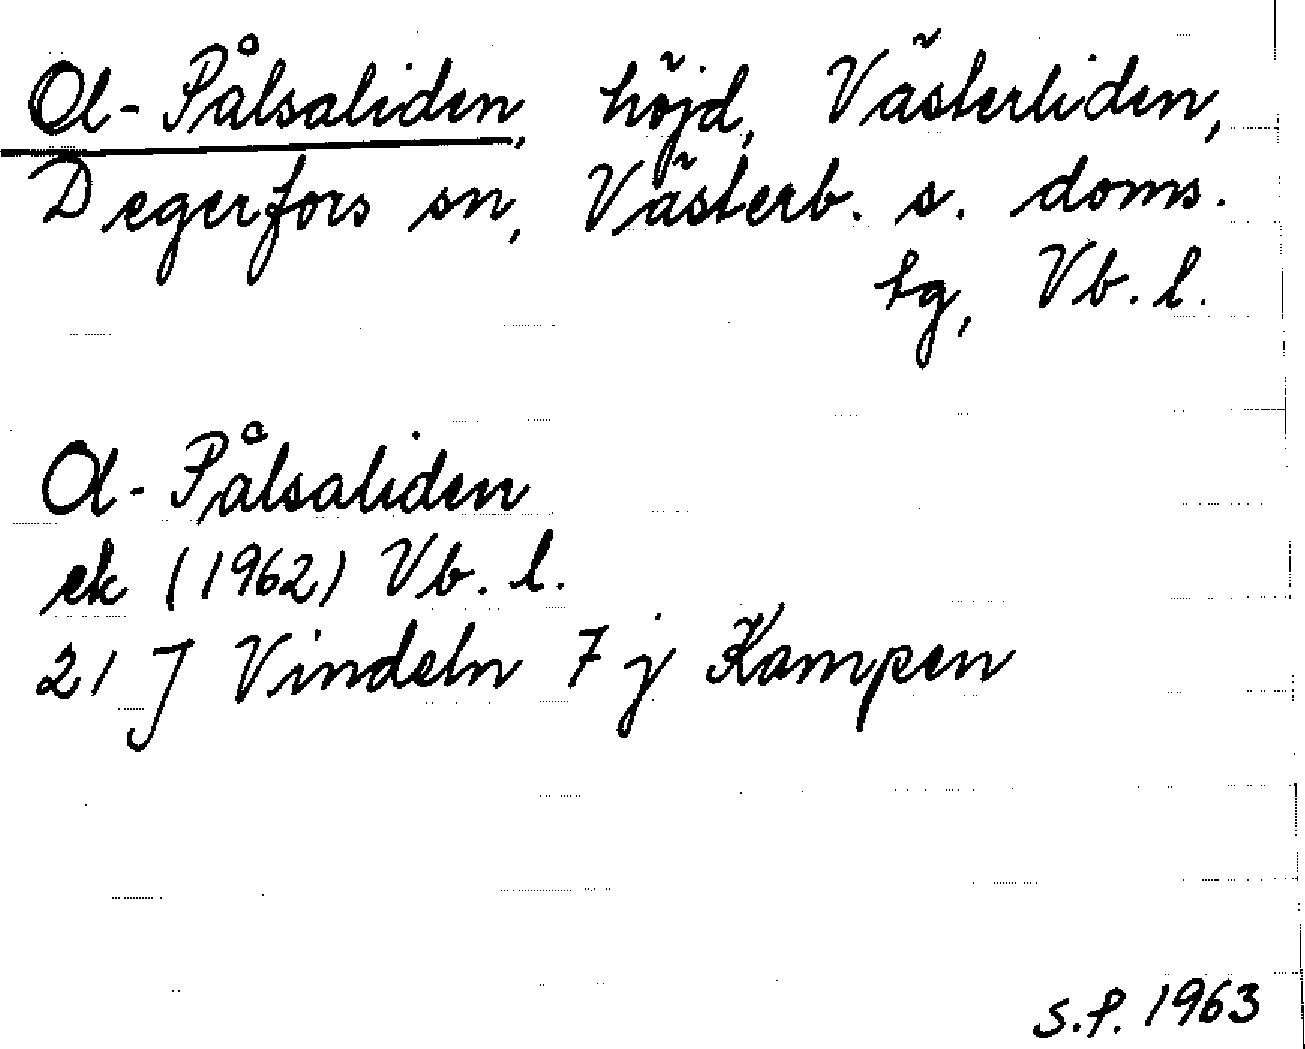 Ol-Pålsaliden, höjd, Västerliden,
Degerfors sn, Västerb. s. doms.
tg, Vb. l.
Ol-Pålsaliden
ek (1962) Vb. l.
21 J Vindeln 7 j Kampen
S.f. 1963